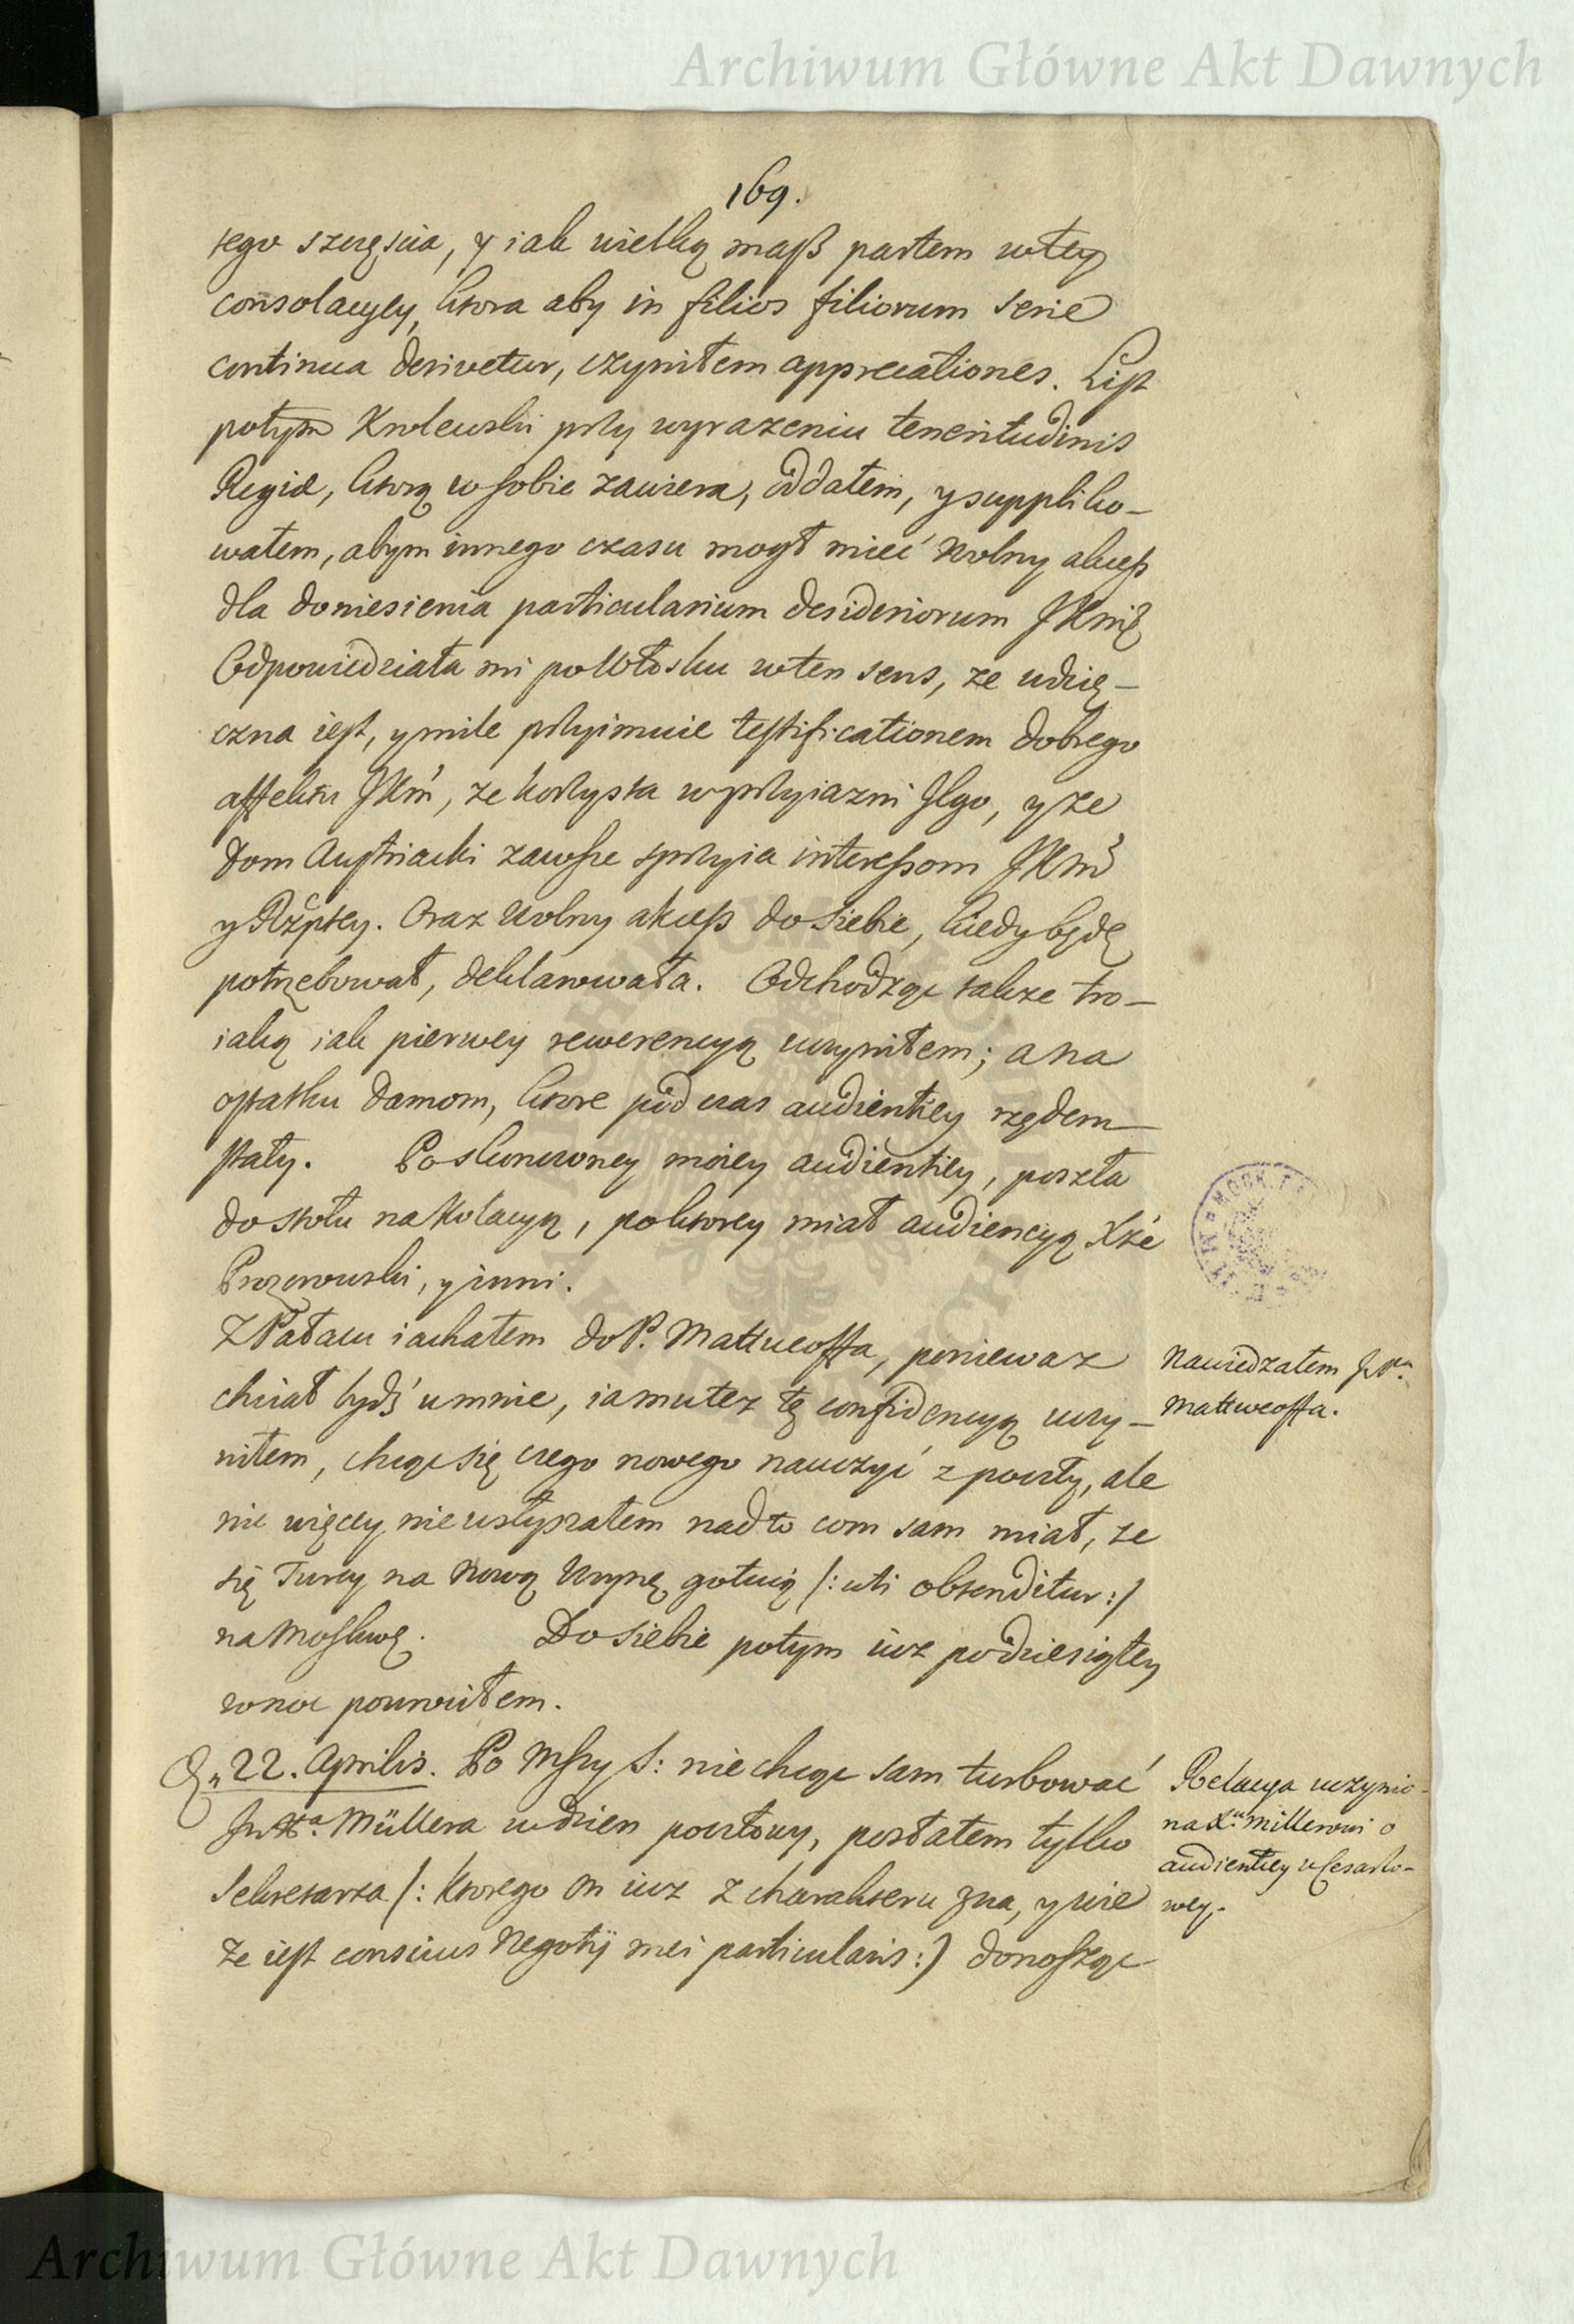 Archiwum Główne Akt Dawnych
169.
tego szczęścia, y iak wielką maß partem w tey
consolacyey, ktora aby in filios filiorum serie
continua derivetur, czyniłem apprecationes. List
potym Krolewski przy wyrazeniu teneritudinis
Regiæ, ktorą w sobie zawiera, oddałem, y suppliko-
wałem, abym innego czasu mogł mieć wolny akceß
dla doniesienia particularium desideriorum JKmć
Odpowiedziała mi po Włosku w ten sens, ze wdzię-
czna iest, y mile przyimuie testificationem dobrego
affektu JKmć, ze korzysta w przyiazni Jego, y ze
Dom Austriacki zawsze sprzyia interessom JKmć
y Rzptey. Oraz wolny akceß do siebie, kiedy będę
potrzebował, deklarowała. Odchodząc takze tro-
iaką iak pierwey rewerencyą uczyniłem; a na
ostatku Damom, ktore podczas audientiey rzędem
stały. Po skonczoney moiey audientiey, poszła
do stołu na Kolacyą, po ktorey miał audiencyą Xże
Prozorowski, y inni.
Z Pałacu iachałem do P. Mattueoffa, poniewaz
chciał bydź u mnie, ia mu tez tę confidencyą uczy-
niłem, chcąc się czego nowego nauczyć z poczty, ale
nic więcey nie usłyszałem nad to com sam miał, ze
się Turcy na nową Woynę gotuią /: uti obtenditur :/
na Moskwę. Do siebie potym iuz po dziesiątey
w noc powrociłem.
Nawiedzałem JPa.
Mattweoffa.
22. Aprilis. Po Mszy S: nie chcąc sam turbować
Müllera w dzien pocztowy, posłałem tylko
Sekretarza /: ktorego on iuz z charakteru zna, y wie
ze iest conscius Negotij mei particularis :/ donosząc
Relacya uczynio-
na Xu Millerowi o
audientiey u Cesarzo-
wey.
Archiwum Główne Akt Dawnych